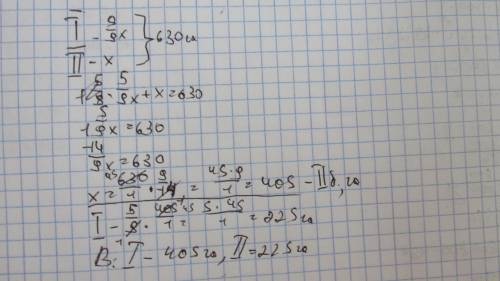 I - 5/9x } 630га
II - x
5/9x + x = 630
1 5/9x = 630
14/9x = 630
x = 630/1 · 9/14 = 45·9/1 = 405 - II б, га
I - 5/9 · 405/1 = 5·45/1 = 225га
В: I - 405га, II = 225га